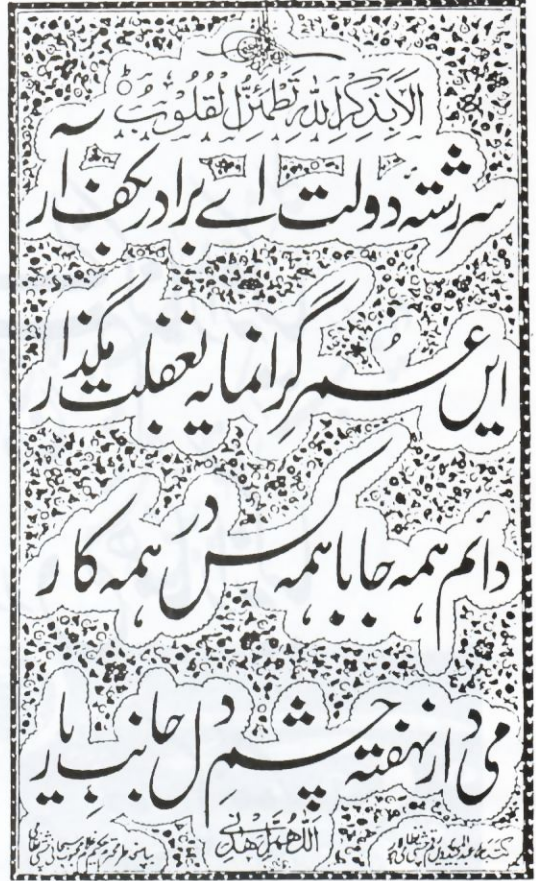 اَلَا بِذِكْرِ اللّٰهِ تَطْمَئِنُّ الْقُلُوْبُ
سررشتۂ دولت اے برادر بکف آر
ایں عُمرِ گرانمایہ بغفلت مگذار
دائم ہمہ جا با ہمہ کس در ہمہ کار
می دار نہفتہ چشمِ دل جانبِ یار
اَللّٰهُمَّ اهْدِنِي